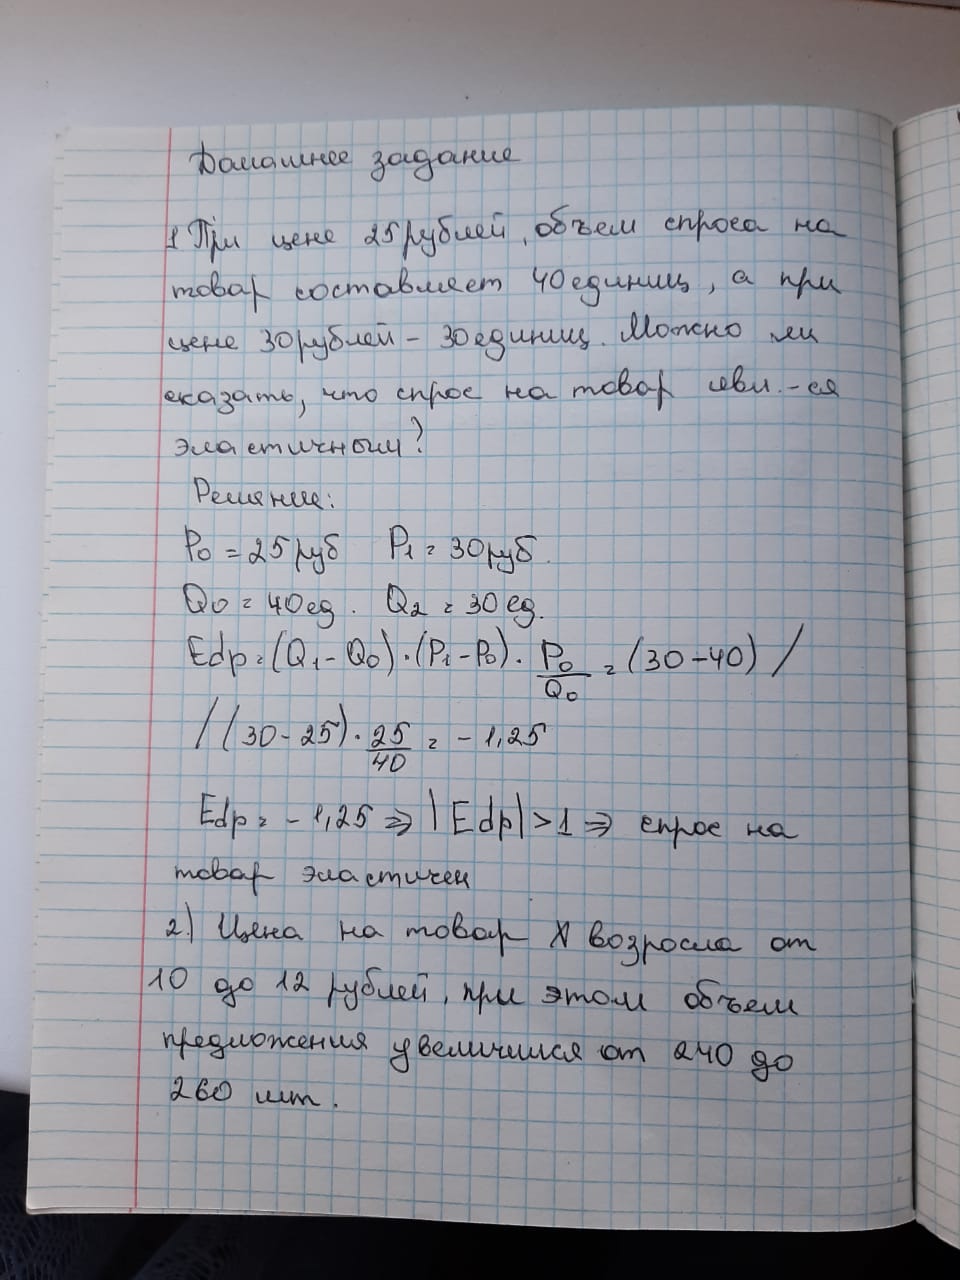 Домашнее задание
1 При цене 25 рублей, объем спроса на
товар составляет 40 единиц, а при
цене 30 рублей - 30 единиц. Можно ли
сказать, что спрос на товар явл.-ся
эластичным?
Решение:
P0 = 25 руб P1 = 30 руб.
Q0 = 40 ед. Q2 = 30 ед.
Edp = (Q1 - Q0) · (P1 - P0) · P0/Q0 = (30 - 40) /
/ (30 - 25) · 25/40 = - 1,25
Edp = - 1,25 => |Edp| > 1 => спрос на
товар эластичен
2.) Цена на товар X возросла от
10 до 12 рублей, при этом объем
предложения увеличился от 240 до
260 шт.